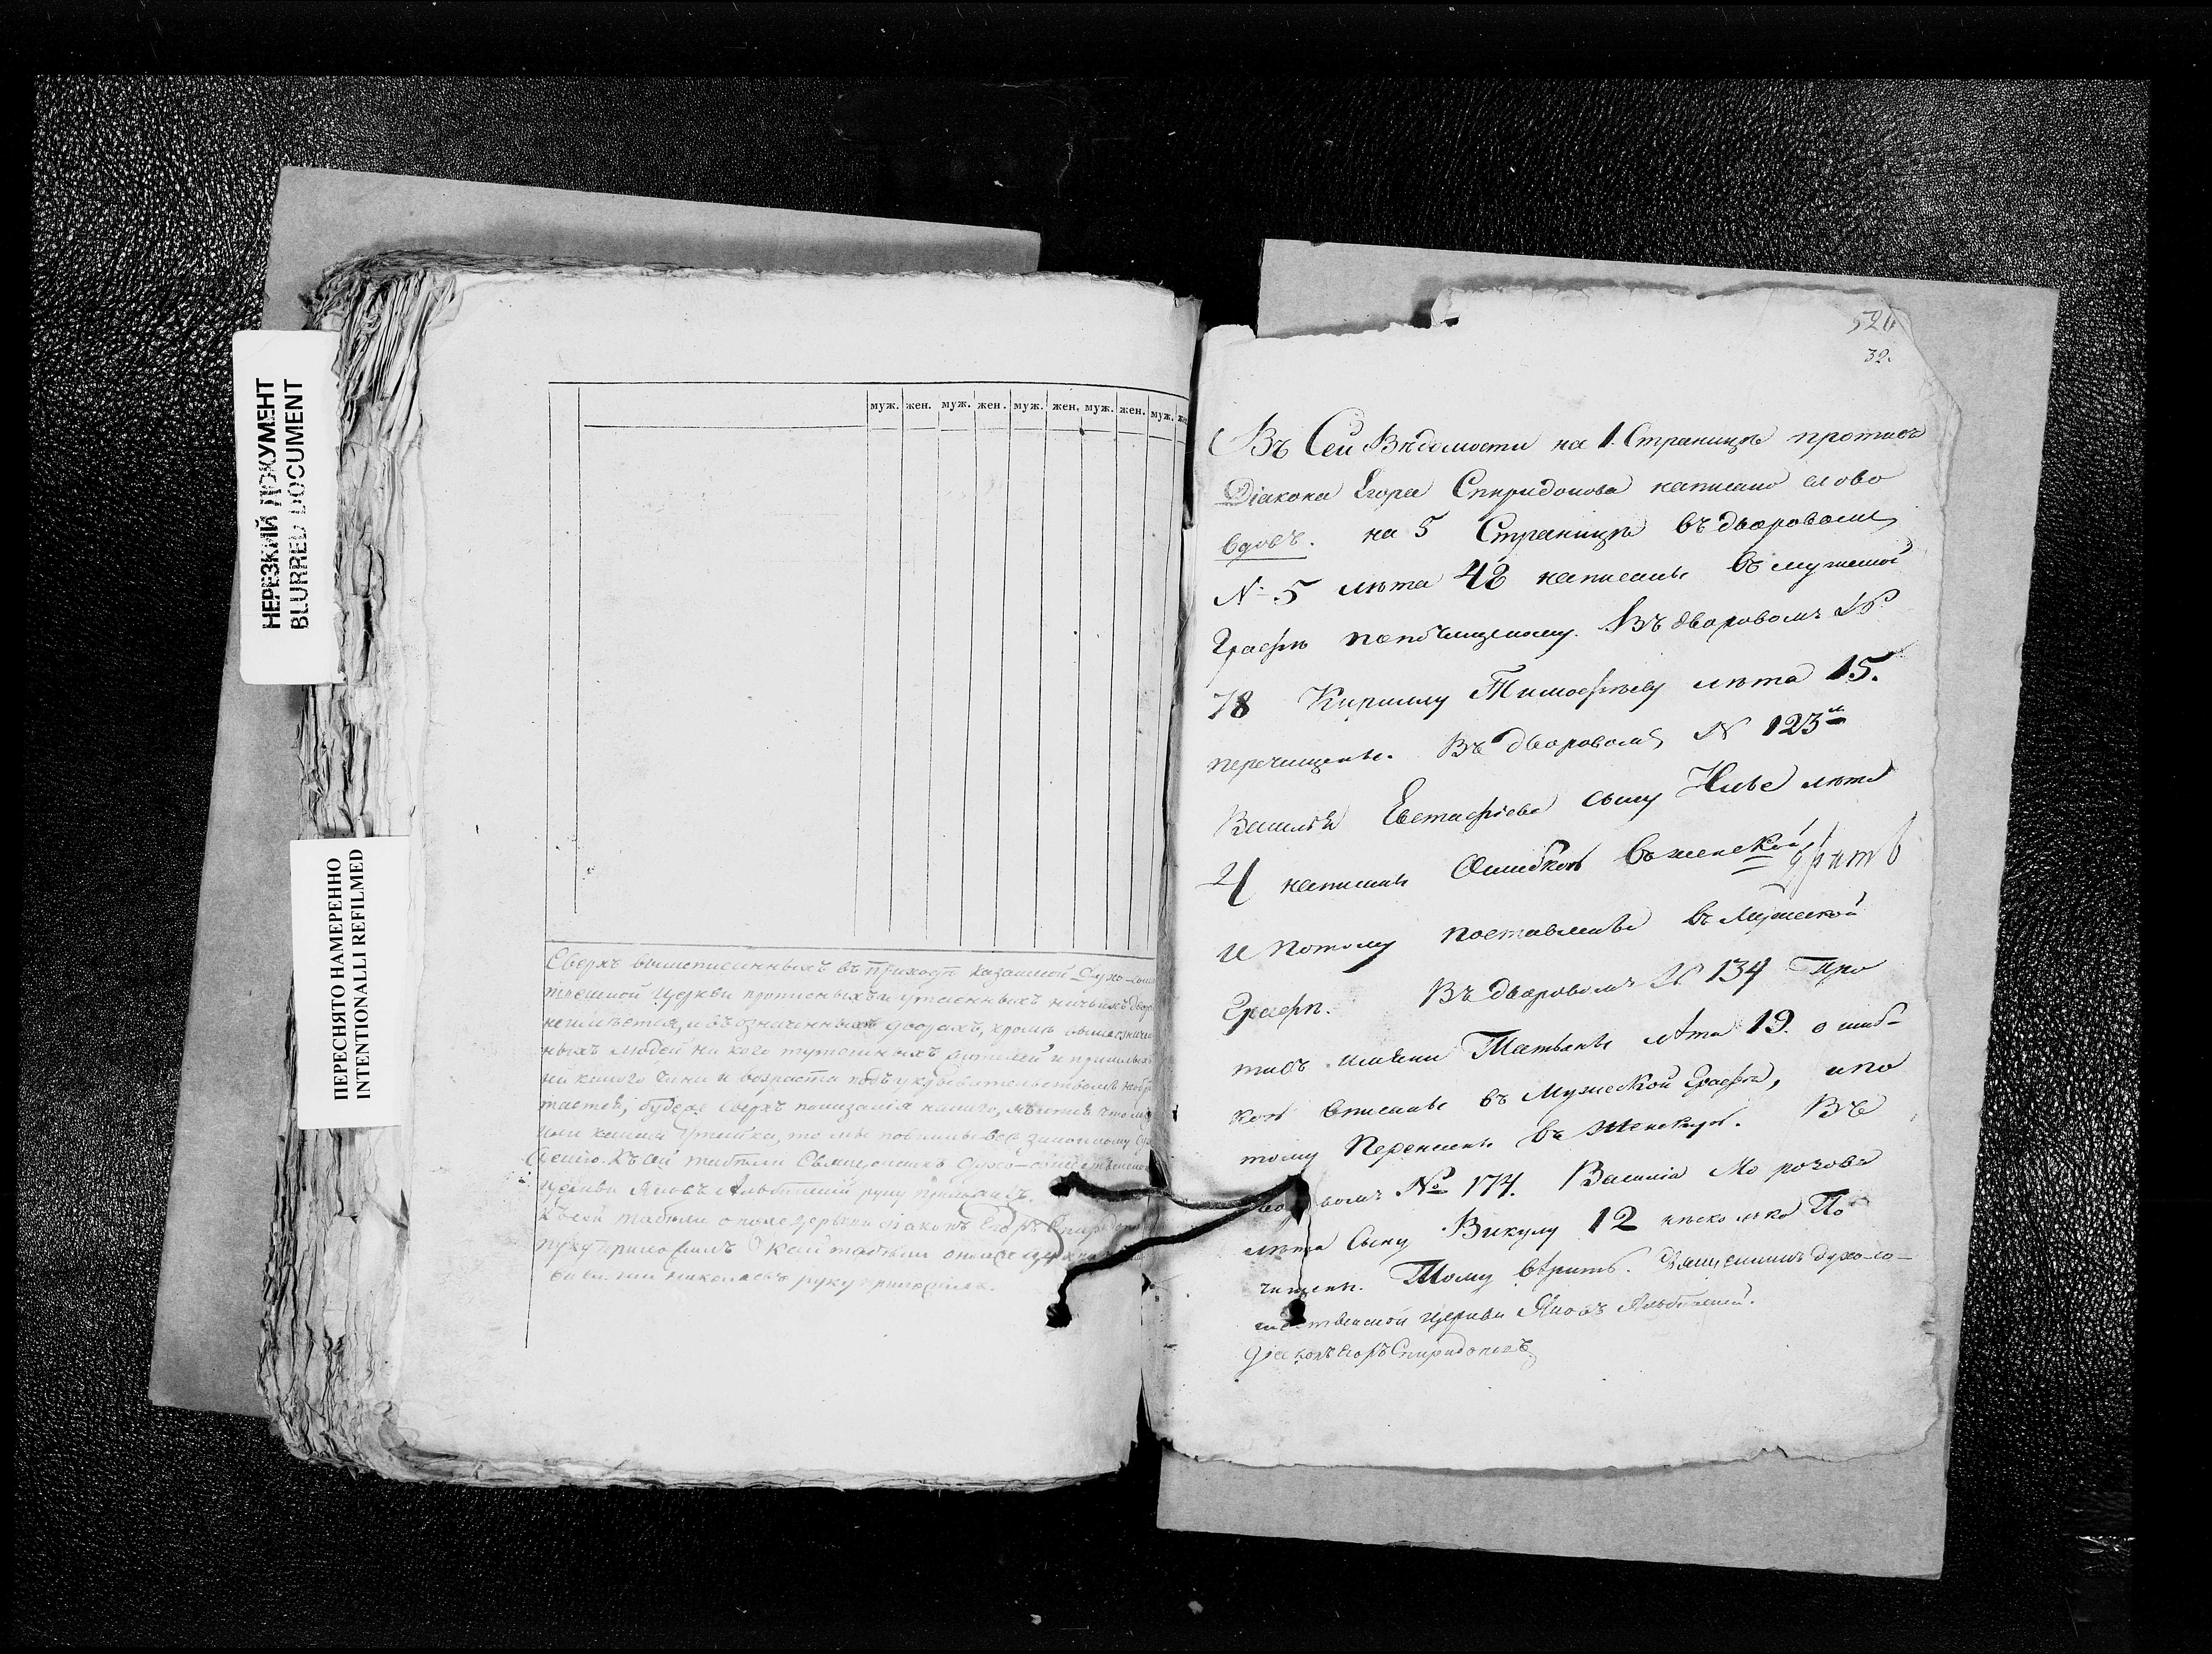 НЕРЕЗКИЙ ДОКУМЕНТ
BLURRED DOCUMENT
ПЕРЕСНЯТО НАМЕРЕННО
INTENTIONALLI REFILMED
муж. жен. муж. жен. муж. жен. муж. жен. муж. же
Сверхъ вышеписанныхъ въ приходѣ Казанной Духо-соше
ственной Церкви прописныхъ и утаенныхъ ничьихъ двор
неимѣется, и въ означенныхъ дворахъ, кромѣ вышеозначен
ныхъ людей ни кого тутошныхъ жителей и пришлыхъ
ни какого чина и возраста подъ укрывательствомъ необр
тается, будеже сверхъ показанія нашего, явится что либо
или какая утайка, то мы повинны все законному су
Къ сей табели Священникъ Духо-сошественной
церкви Яковъ Альбицкій руку приложилъ.
Къ сей табели оноже церкви діаконъ Егоръ Спиридоновъ
руку приложилъ К сей табели оноже церкви
Николаевъ руку приложилъ.
526
32.
Въ Сей Вѣдомости на 1. Страницѣ противъ
Діакона Егора Спиридонова написано слово
вдовъ. на 5 Страницѣ въ дворовомъ
№ 5 лѣта 42 написаны въ мужеской
Графѣ поподчищеному. Въ дворовомъ №
78 Кирилу Тимофѣеву лѣта 15.
перечищены. Въ дворовомъ № 123м
Василья Евстафіева сыну Ильѣ лѣта
4 написаны Ошибкою въ женской графѣ
и потому поставлены въ Мужеской
Графѣ. Въ дворовомъ № 134 Про
тивъ имяни Татьяны лѣта 19. ошиб-
кою вписаны въ Мужеской Графѣ, ипо
тому Перенисены въ женскую. Въ
вомъ № 174. Василія Морозова
лѣта Сыну Викулу 12 нѣсколько По
чищены. Тому вѣрить. Священникъ Духо-со-
шественной церкви Яковъ Альбицкій.
Діаконъ Егоръ Спиридоновъ